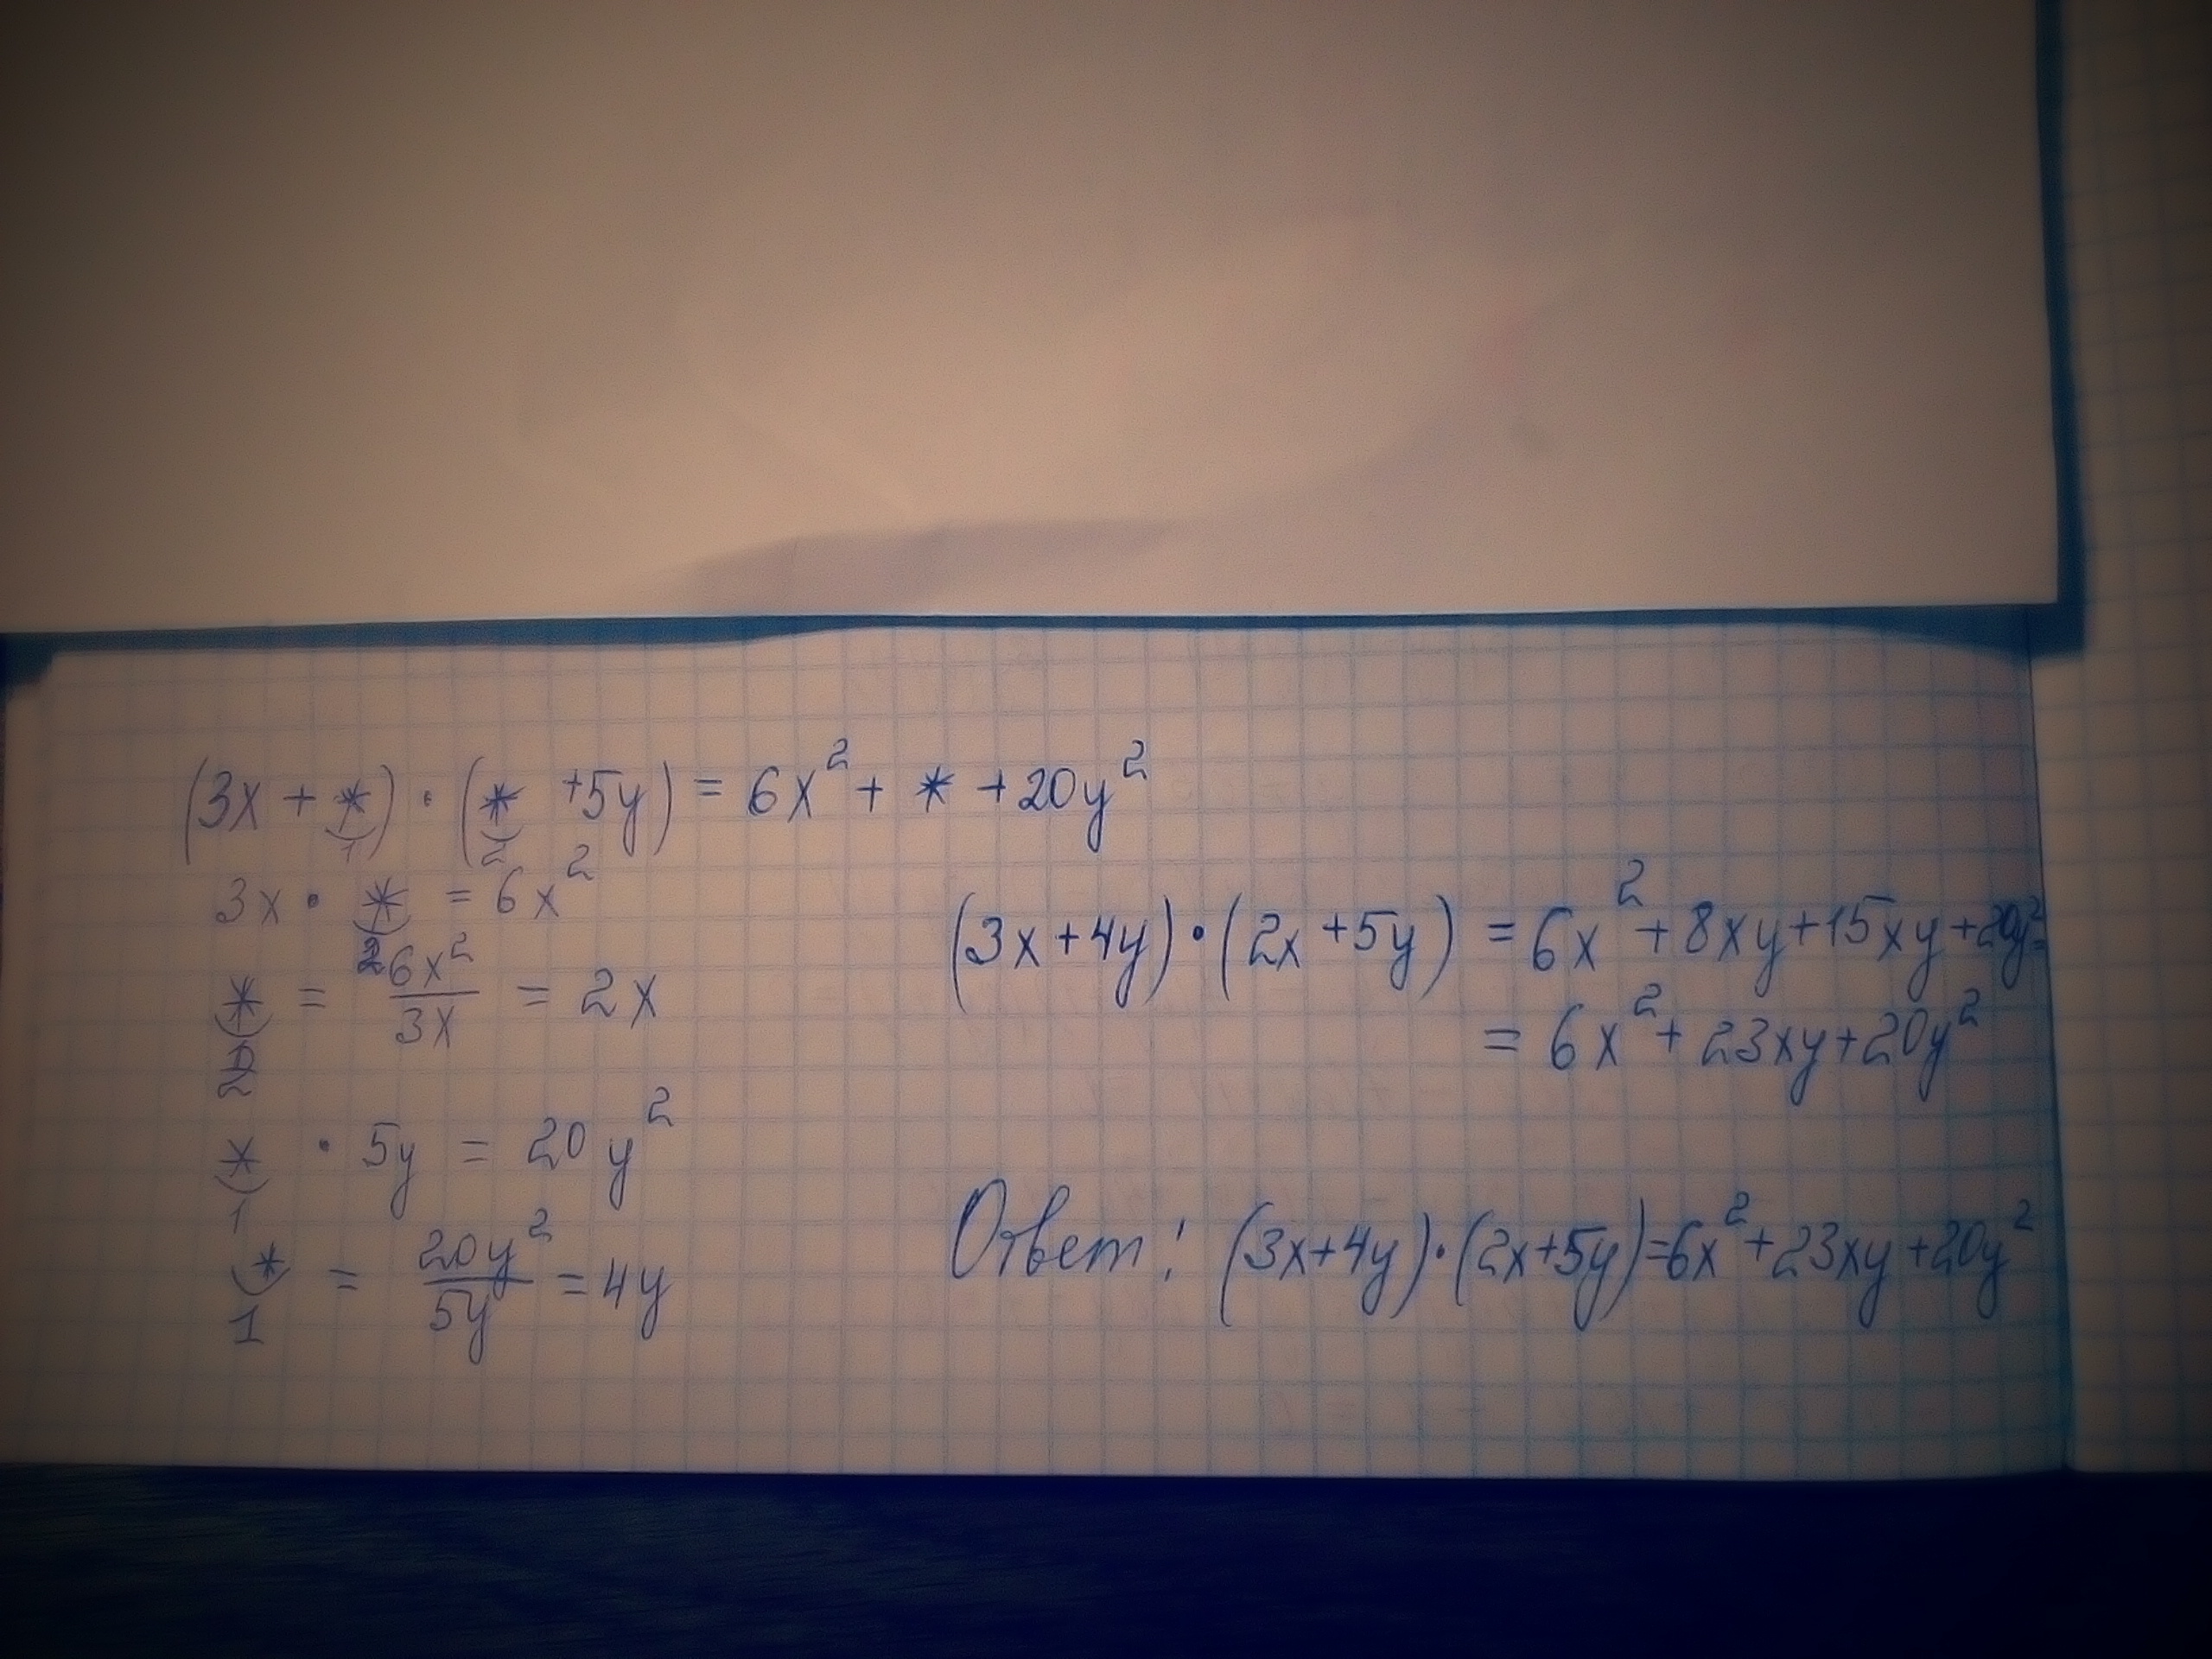 (3x + *) · (* +5y) = 6x² + * + 20y²
1 2
3x · * = 6x²
2
* = 6x²/3x = 2x
2
* · 5y = 20y²
1
* = 20y²/5y = 4y
1
(3x+4y)·(2x+5y) = 6x²+8xy+15xy+20y²=
= 6x²+23xy+20y²
Ответ: (3x+4y)·(2x+5y)=6x²+23xy+20y²